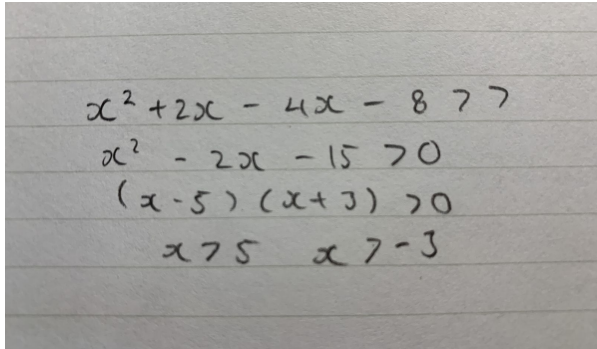 x² + 2x - 4x - 8 > 7
x² - 2x - 15 > 0
(x - 5) (x + 3) > 0
x > 5 x > -3